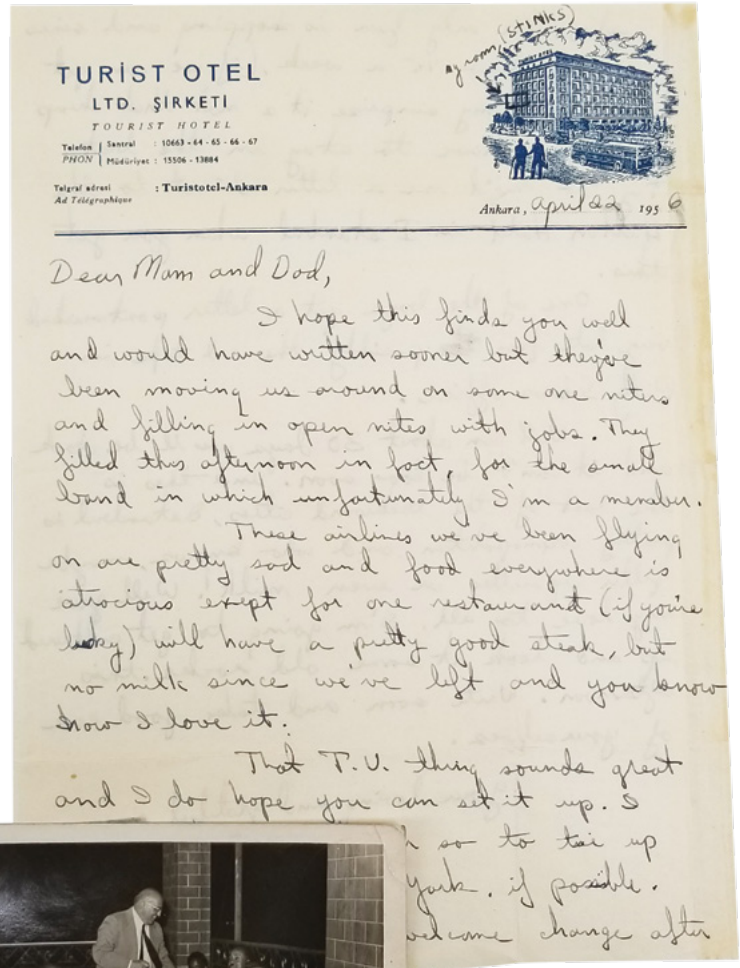 my room (STINKS)
TURİST OTEL
LTD. ŞİRKETİ
TOURIST HOTEL
Telefon PHON Santral : 10663 - 64 - 65 - 66 - 67
Müdüriyet : 15506 - 13884
Telgraf adresi : Turistotel-Ankara
Ad Télégraphique
Ankara, april 22 1956
Dear Mom and Dad,
I hope this finds you well
and would have written sooner but they've
been moving us around on some one niters
and filling in open nites with jobs. They
filled this afternoon in fact, for the small
band in which unfortunately I'm a member.
These airlines we've been flying
on are pretty sad and food everywhere is
atrocious exept for one restaurant (if you're
lucky) will have a pretty good steak, but
no milk since we've left and you know
how I love it.
That T.V. thing sounds great
and I do hope you can set it up. I
so to tie up
York, if possible.
welcome change after